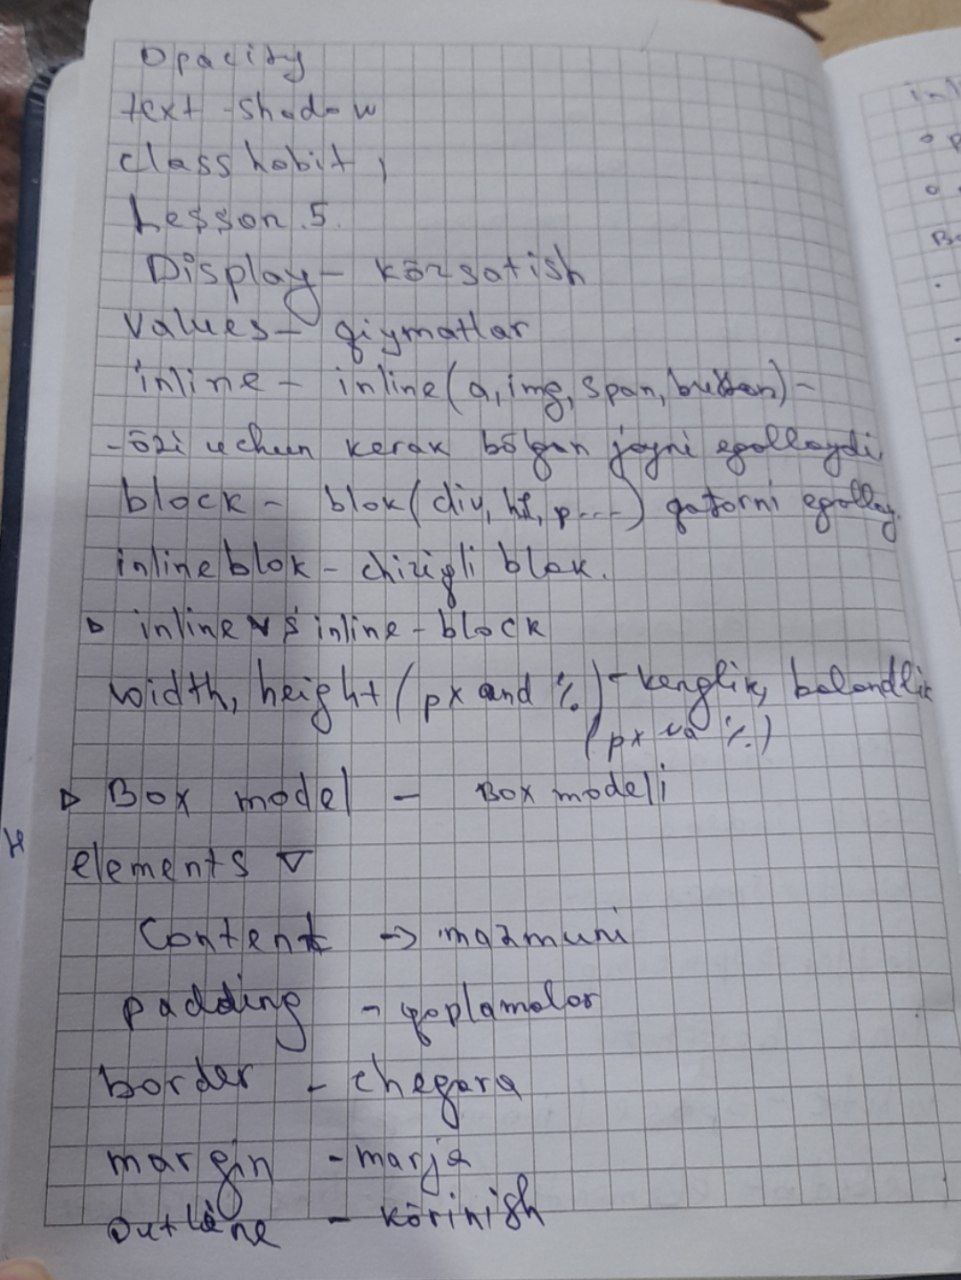 Opacity
text-shadow
class hobit,
Lesson.5.
Display - kōrsatish
values - qiymatlar
inline - inline (a, img, span, button) -
- ōzi uchun kerak bōlgan joyni egallaydi,
block - blok (div, h1, p...) qatorni egallay.
inline blok - chiziqli blok.
▷ inline vs inline-block
width, height (px and %) - kenglik, balandlik
(px va %)
▷ Box model - Box modeli
elements ▽
Content → mazmuni
padding - qoplamalar
border - chegara
margin - marja
Outline - kōrinish
inli
Bo